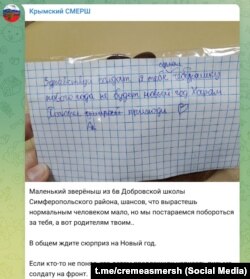 Крымский СМЕРШ
Здравствуй солдат, я тебе
нового года не будет новый год Харам
приходи
Маленький зверёныш из 6в Добровской школы
Симферопольского района, шансов, что вырастешь
нормальным человеком мало, но мы постараемся побороться
за тебя, а вот родителям твоим..
В общем ждите сюрприз на Новый год.
Если кто-то не
солдату на фронт.
t.me/cremeasmersh (Social Media)